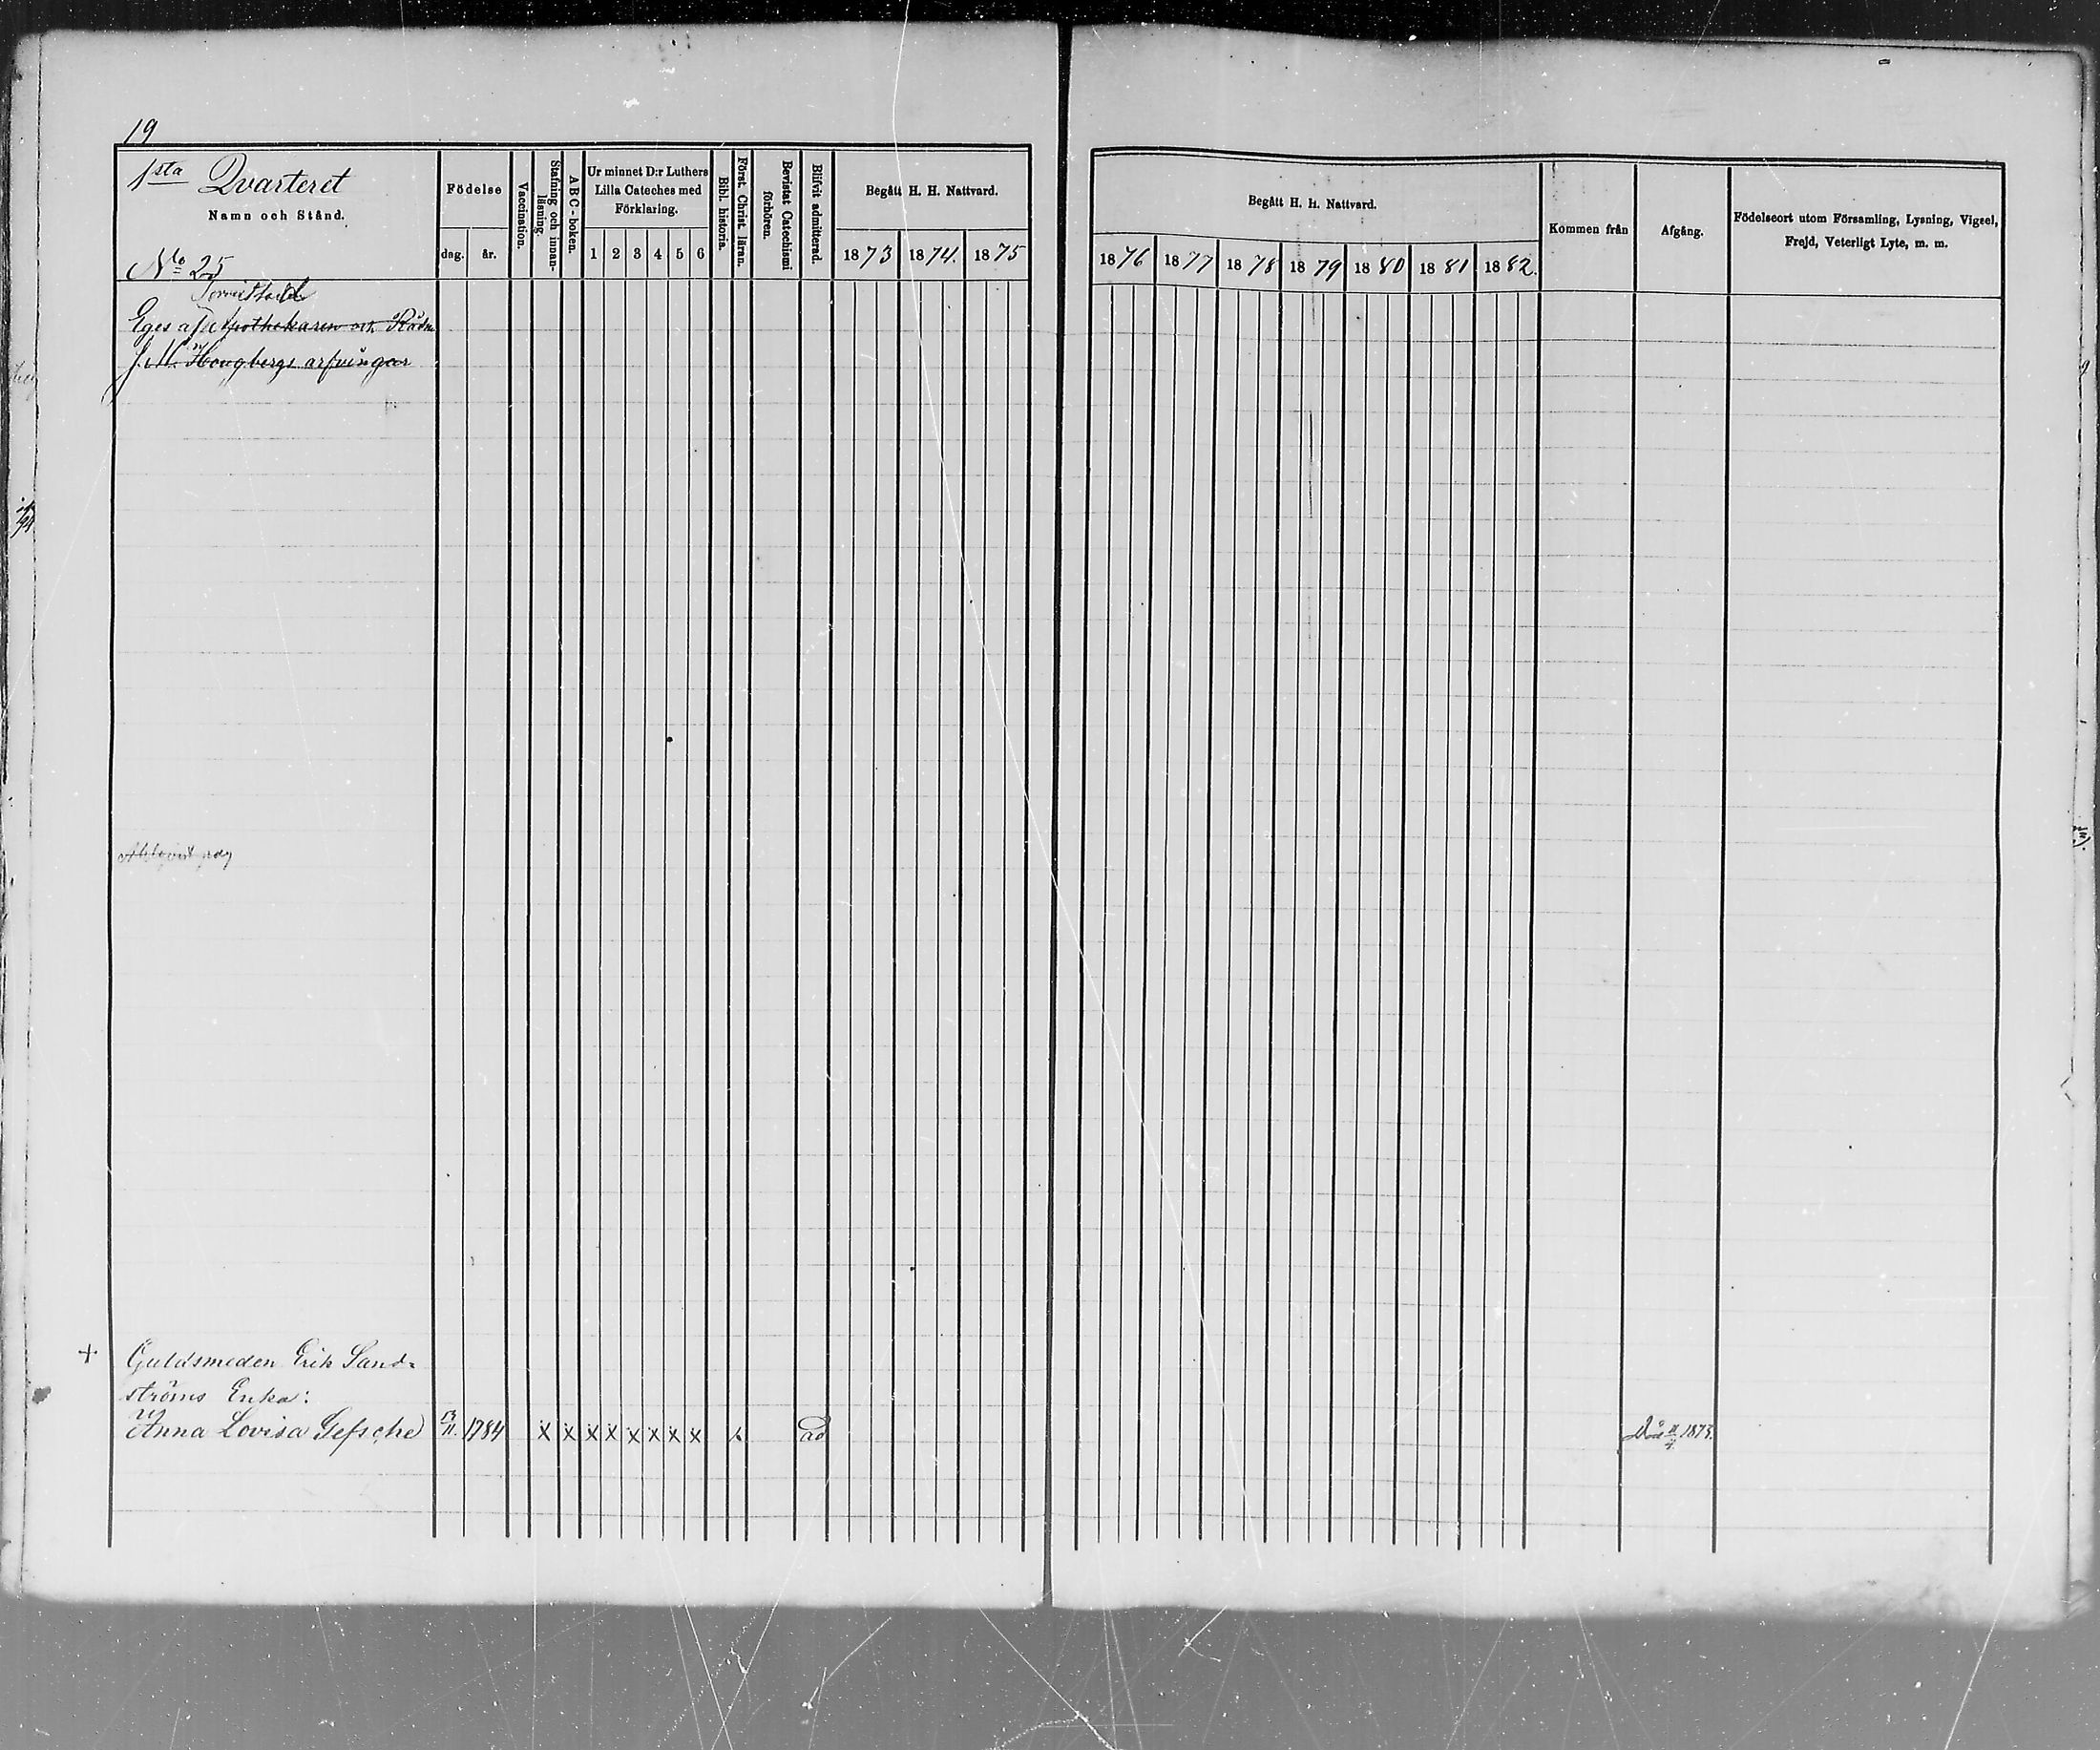 19
1sta Qvarteret
Namn och Stånd.
No 25
Födelse
dag. år.
Vaccination.
Stafning och innan-
läsning.
A B C-boken.
Ur minnet D:r Luthers
Lilla Cateches med
Förklaring.
1 2 3 4 5 6
Bibl. historia.
Först. Christ. läran.
Bevistat Catechismi
förhören.
Blifvit admitterad.
Begått H. H. Nattvard.
1873 1874. 1875
Begått H. H. Nattvard.
1876 1877 1878 1879 1880 1881 1882.
Kommen från
Afgång.
Födelseort utom Församling, Lysning, Vigsel,
Frejd, Veterligt Lyte, m. m.
Eges af Apothekaren och Rådm
J. M. Hougbergs arfvingar
+ Guldsmeden Erik Sand-
ströms Enka:
Anna Lovisa Gefsche 1784 x x x x x x x x x ad Död 1873.